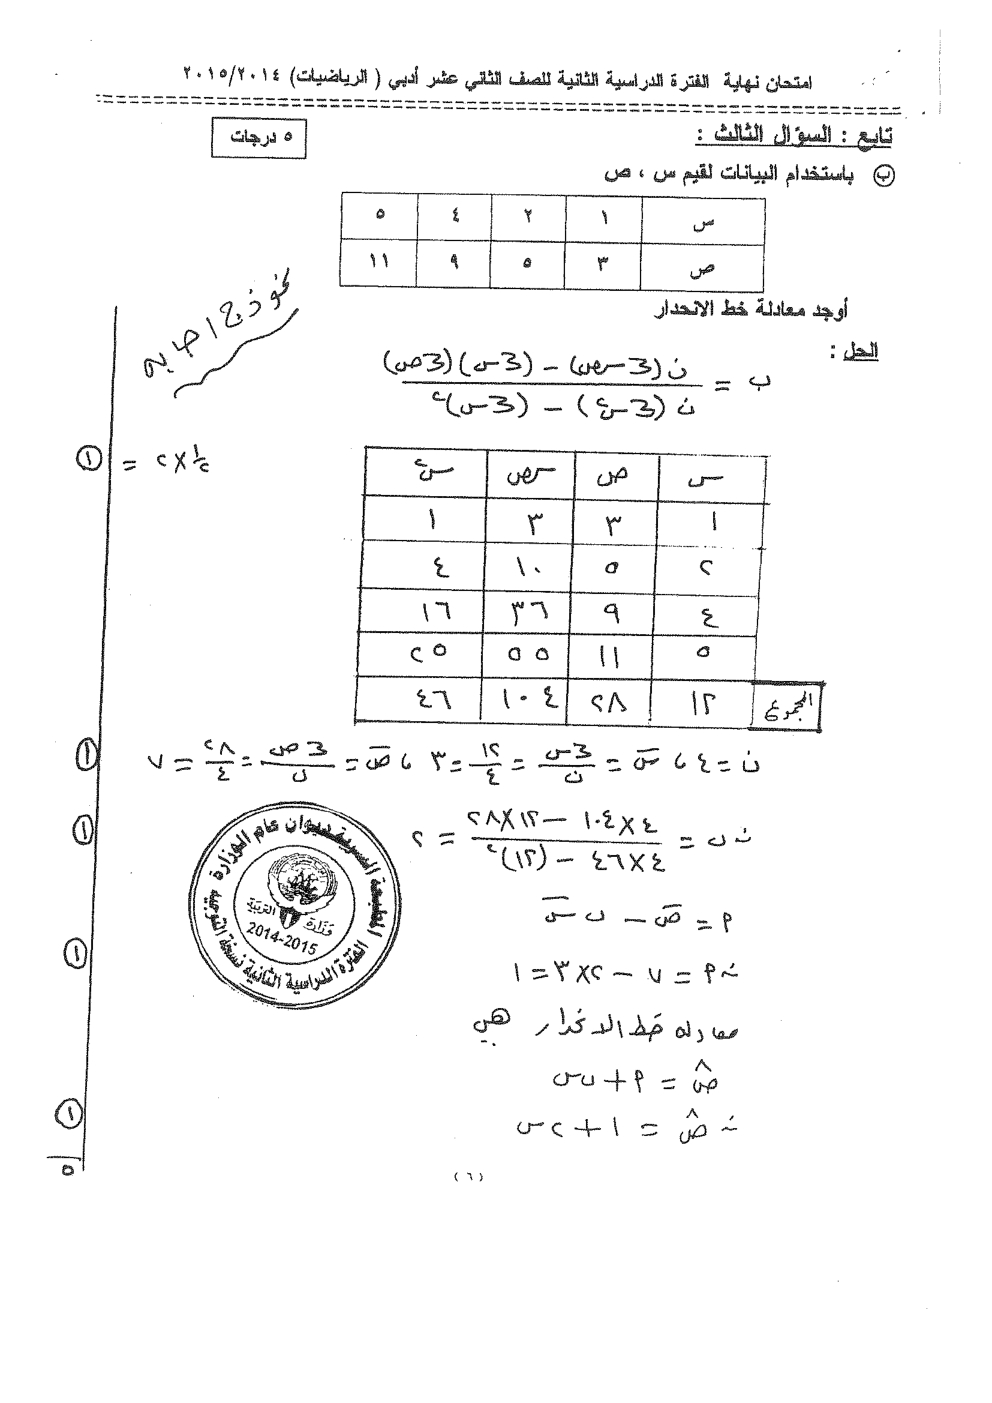 امتحان نهاية الفترة الدراسية الثانية للصف الثاني عشر أدبي ( الرياضيات ) ٢٠١٥/٢٠١٤
تابع : السؤال الثالث :
٥ درجات
ب باستخدام البيانات لقيم س ، ص
س ١ ٢ ٤ ٥
ص ٣ ٥ ٩ ١١
أوجد معادلة خط الانحدار
نموذج اجابه
الحل :
ب = ن (∑ س ص) − (∑ س) (∑ ص) / ن (∑ س²) − (∑ س)²
س ص س ص س²
١ ٣ ٣ ١
٢ ٥ ١٠ ٤
٤ ٩ ٣٦ ١٦
٥ ١١ ٥٥ ٢٥
المجموع ١٢ ٢٨ ١٠٤ ٤٦
½ × ٢ = ١
ن = ٤ ، س̄ = ∑ س / ن = ١٢ / ٤ = ٣ ، ص̄ = ∑ ص / ن = ٢٨ / ٤ = ٧
١
∴ ب = ٤ × ١٠٤ − ١٢ × ٢٨ / ٤ × ٤٦ − (١٢)² = ٢
١
م = ص̄ − ب س̄
∴ م = ٧ − ٢ × ٣ = ١
١
معادله خط الانحدار هي
ص̂ = م + ب س
∴ ص̂ = ١ + ٢ س
١
٥
المطبعة السرية ديوان عام الوزارة
وزارة التربية
2014-2015
الفترة الدراسية الثانية نسخة التوجيه
(٦)